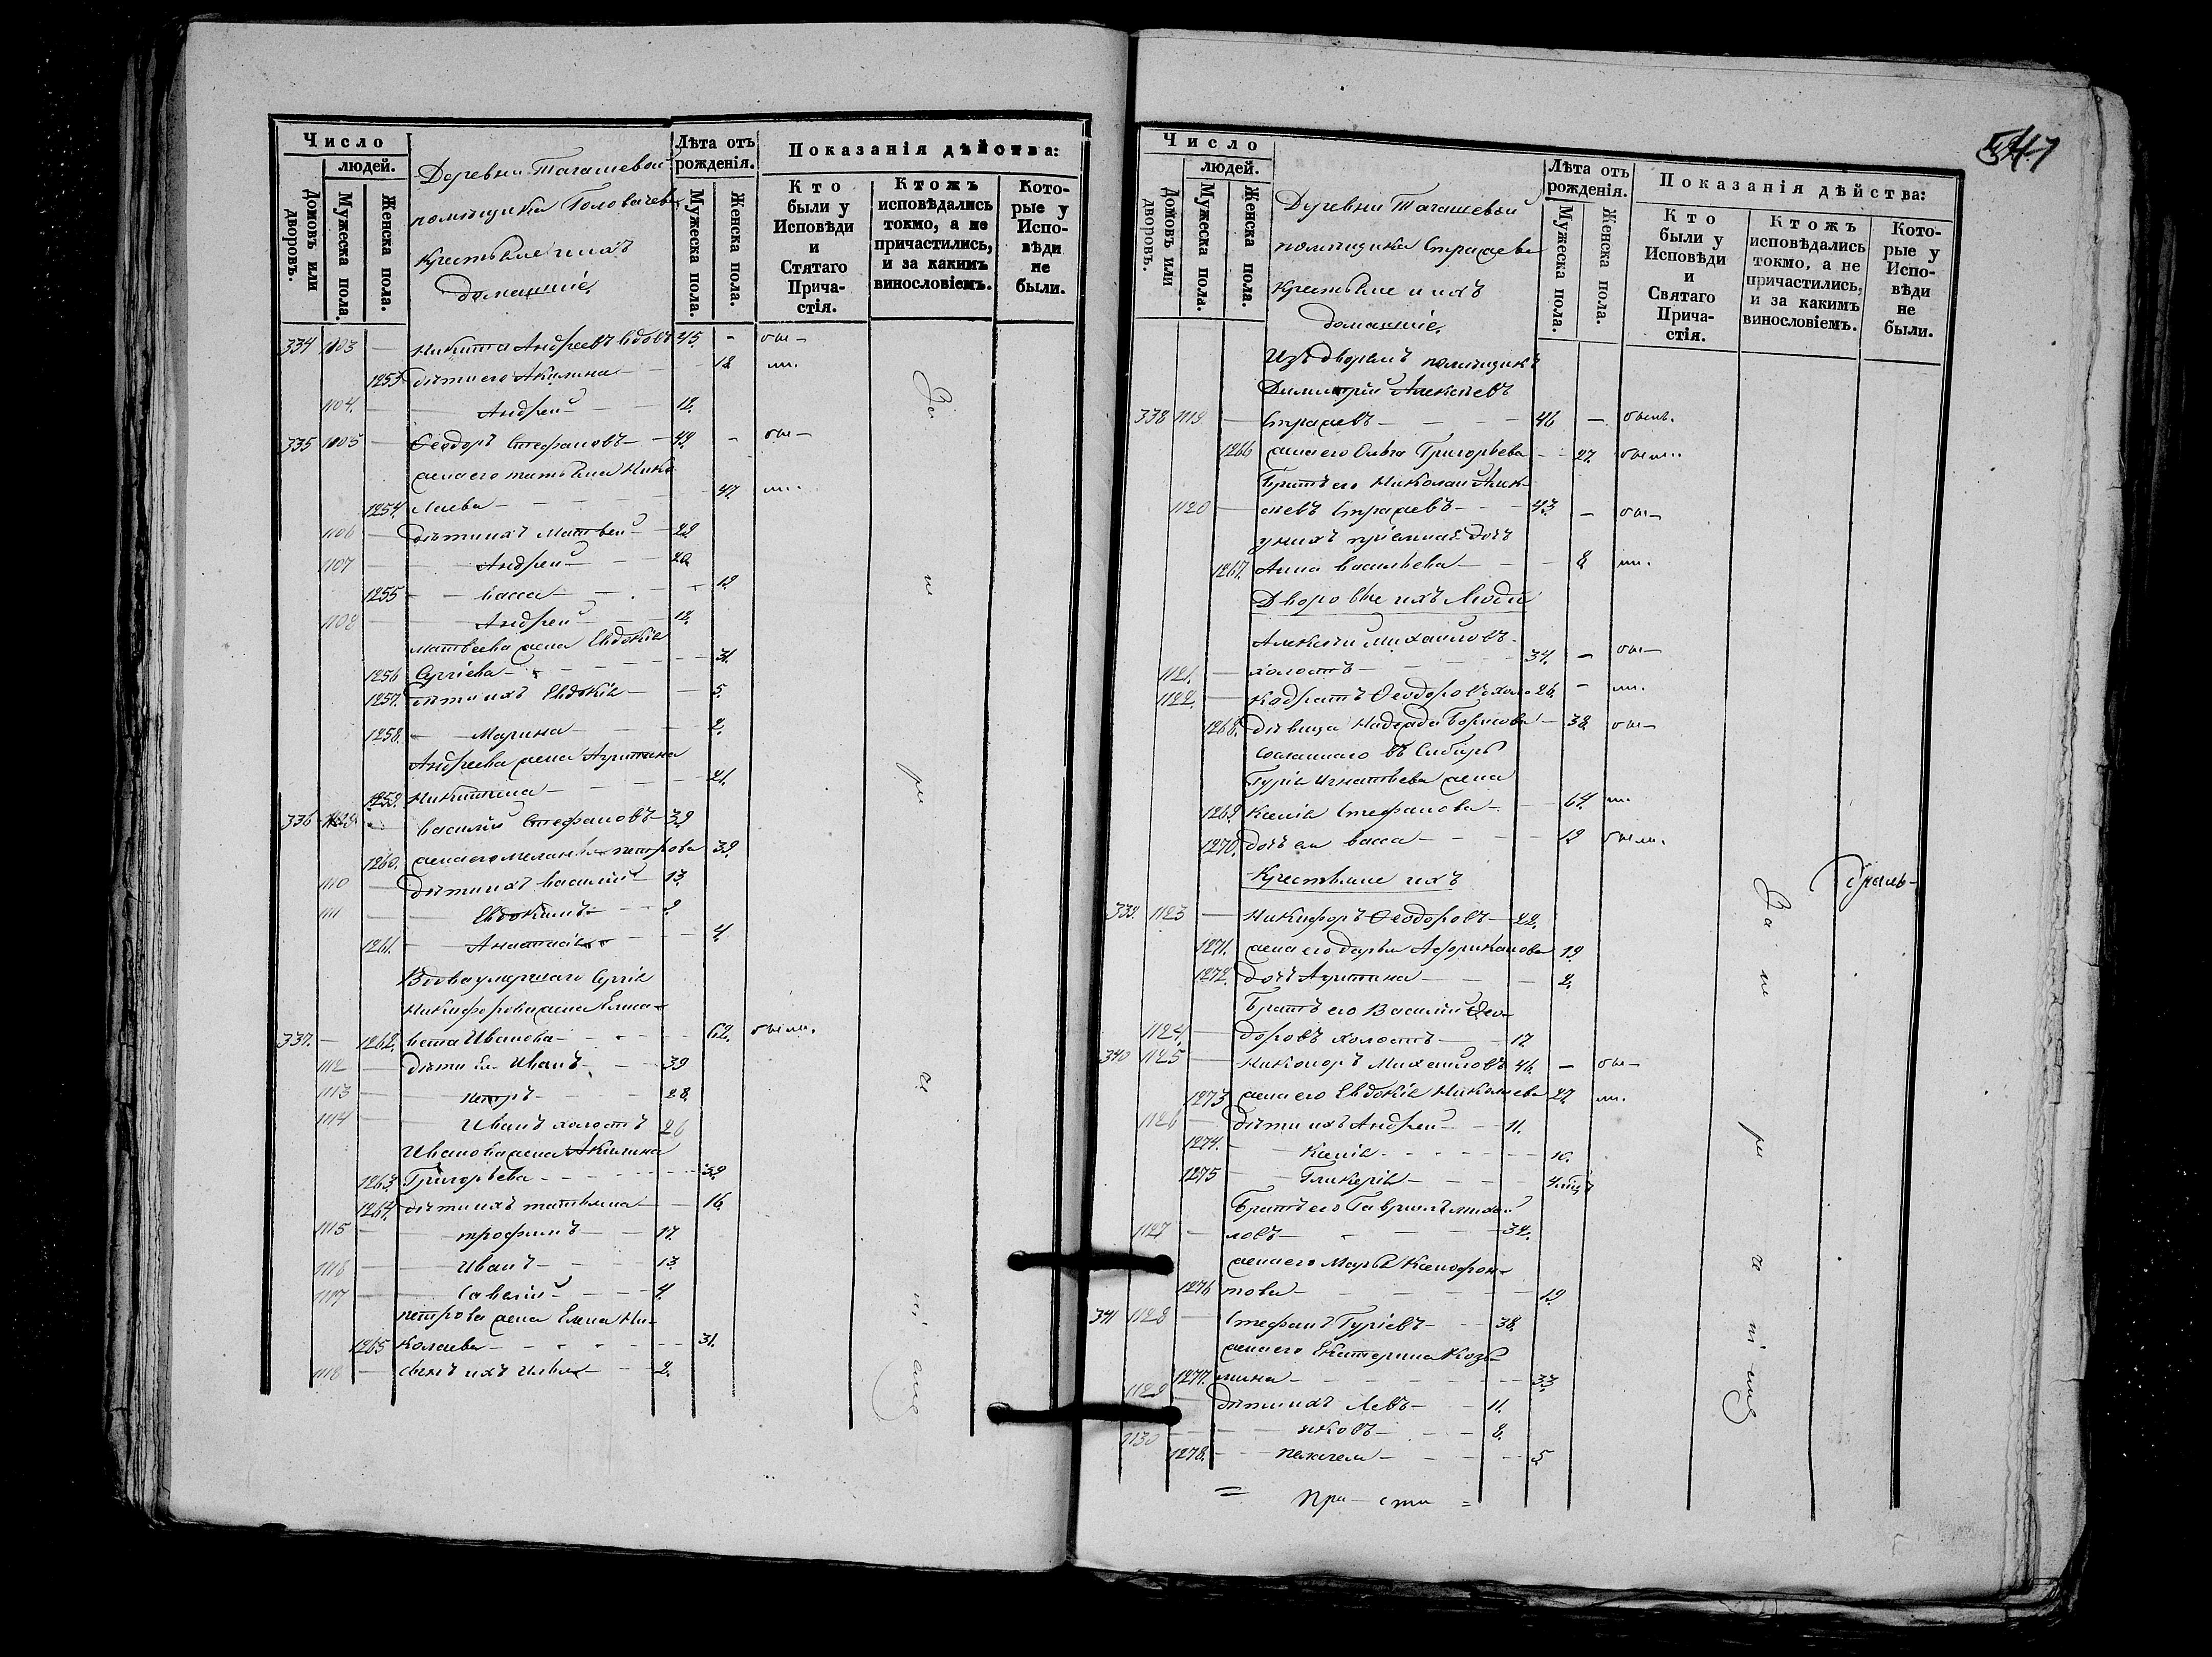 Число
людей.
Домовъ или дворовъ.
Мужеска пола.
Женска пола.
Деревни Тагашевой
помѣщика Головачева
Крестьяне и ихъ
домашніе.
Лѣта отъ рожденія.
Мужеска пола.
Женска пола.
Показанія дѣйства:
Кто были у Исповѣди и Стятаго Прича-стія.
Ктожъ исповѣдались токмо, а не причастились, и за какимъ винословіемъ.
Кото-рые у Испо-вѣди не были.
334 1103 — Никита Андреевъ вдовъ 45. — бы —
1253 дѣти его Акилина — 18 ли.
1104. — Андрей — 12.
335 1105 — Ѳеодоръ Стефановъ — 49 — бы —
жена его Татьяна Нико
1254. лаева — 47. ли.
1106 — дѣти ихъ Матвей — 22.
1107 — Андрей — 20.
1255 — Васса — 19.
1108 — Андрей — 12.
Матвеева жена Евдокія
1256 Сергіева — 31.
1257. дѣти ихъ Евдокія — 5.
1258. — Марина — 2.
Андреева жена Агрипина
1259. Никитина — 21.
336 — Василій Стефановъ — 39
1260. жена его Меланья Петрова 39.
1110 — дѣти ихъ Василій — 13.
1111 — Евдокимъ — 9.
1261. — Анастасія — 4.
Вдова умершаго Сергія
Никифорова жена Елиса-
337. — 1262. вета Иванова — 62. были.
1112 — дѣти ея Иванъ — 39
1113 — Петръ — 28.
1114 — Иванъ холостъ 26
Иванова жена Акилина
1263. Григорьева — 39.
1264. дѣти ихъ Татьяна — 16.
1115 — Трофимъ — 17.
1116 — Иванъ — 13
1117 — Савелій — 4.
Петрова жена Елена Ни-
1265 колаева — 31.
1118 — сынъ ихъ Илья — 2.
За малолѣтст
547
Число
людей.
Домовъ или дворовъ.
Мужеска пола.
Женска пола.
Деревни Тагашевой
помѣщика Страхева
Крестьяне и ихъ
домашніе.
Лѣта отъ рожденія.
Мужеска пола.
Женска пола.
Показанія дѣйства:
Кто были у Исповѣди и Святаго Прича-стія.
Ктожъ исповѣдались токмо, а не причастились, и за какимъ винословіемъ.
Кото-рые у Испо-вѣди не были.
Изъ дворянъ помѣщикъ
Димитрій Алексѣевъ
338 1119 — 46 — были.
1266 жена его Ольга Григорьева — 27. были.
Братъ его Николай Алек-
1120 — сѣевъ — 43. — бы —
у нихъ пріемная дочь
1267. Анна Васильева — 8 ли.
Дворовые ихъ Люди
Алексѣй Михайловъ
1121. — холостъ — 34. — бы —
1122. — Ѳеодоровъ холо 26 — ли.
1268. дѣвица Надежда Борисова — 38. бы —
Сосланнаго въ Сибирь
Гурія Игнатьева жена
1269 Ксенія Стефанова — 64. ли.
1270. дочь ея Васса — 19 были.
Крестьяне ихъ
339. 1123 — Никифоръ Ѳеодоровъ — 22.
1271. жена его Дарья Африканова 19
1272. дочь Агрипина — 2.
Братъ его Василій Ѳео-
1124. — доровъ холостъ — 17.
340 1125 — Никоноръ Михайловъ 46. — бы —
1273 жена его Евдокія Николаева 27. ли.
1126 — дѣти ихъ Андрей — 11.
1274. — Ксенія — 10.
1275 — Гликерія — 4 мѣц
Братъ его Гавріилъ Михай
1127 — ловъ — 32.
жена его Марья Ксенофон-
1276 това — 19.
341 1128 — Стефанъ Гуріевъ — 38.
жена его Екатерина Козь
1277. мина — 33
1129 — дѣти ихъ Левъ — 11.
1130 — Яковъ — 8.
1278. — Пелагея — 5